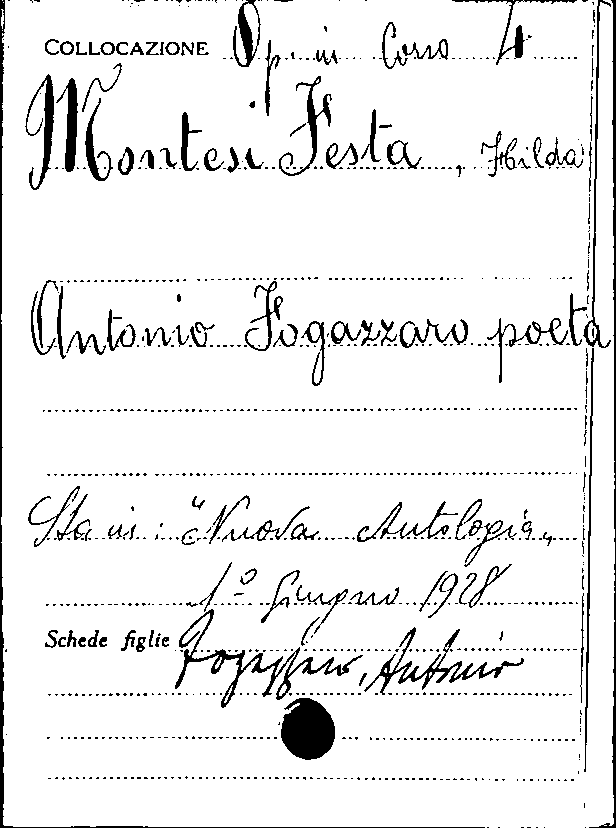 COLLOCAZIONE Op. in Corso 4
Montesi Festa, Hilda
Antonio Fogazzaro poeta
Sta in: "Nuova Antologia„
1º Giugno 1928
Schede figlie Fogazzaro, Antonio